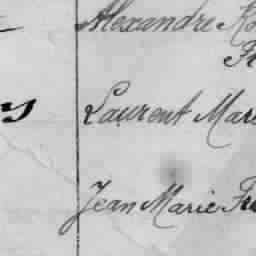 Alexandre
Laurent Mari
Jean Marie Fr